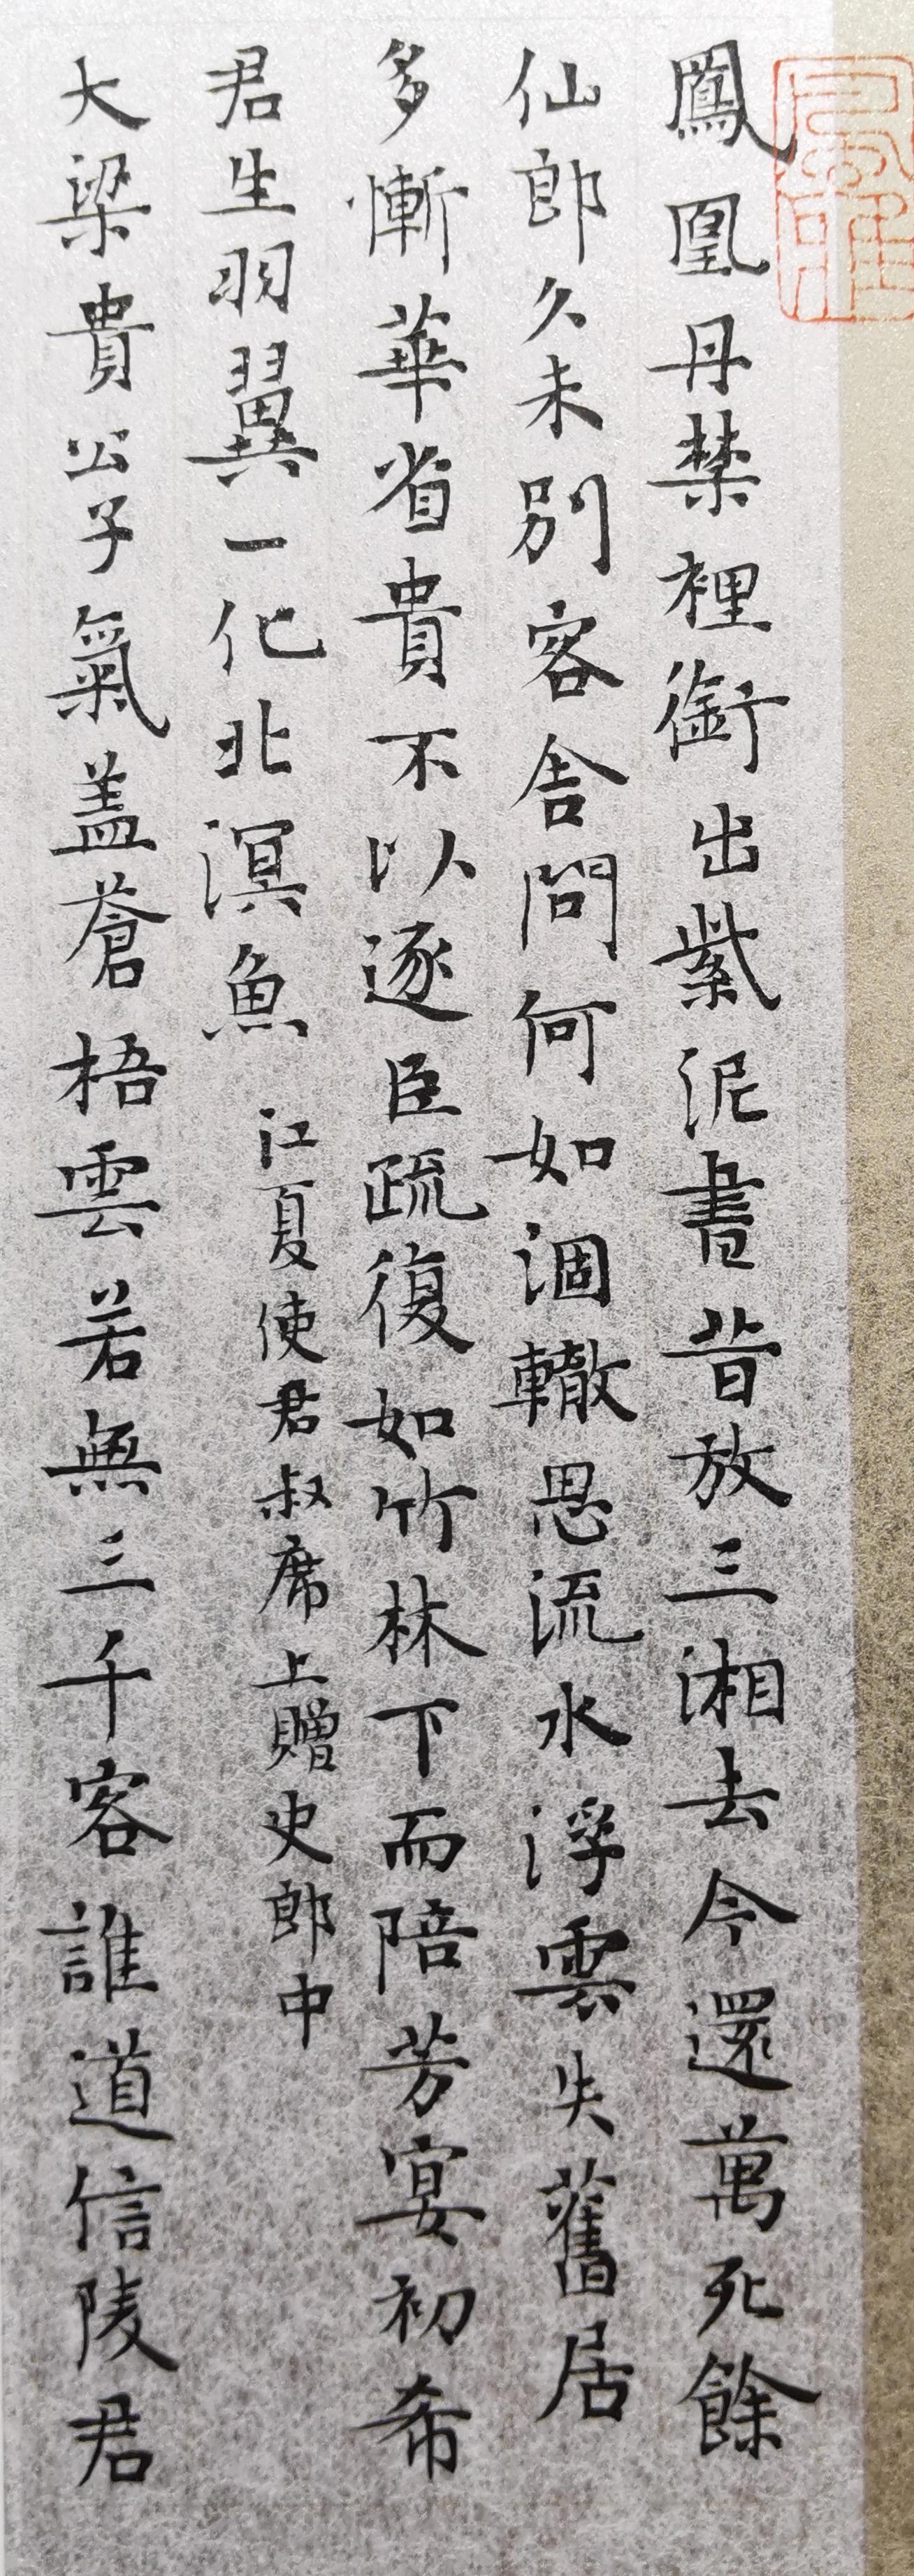 鳳凰丹禁裡銜出紫泥書昔放三湘去今還萬死餘
仙郎久未別客舍問何如涸轍思流水浮雲失舊居
多慚華省貴不以逐臣疏復如竹林下而陪芳宴初希
君生羽翼一化北溟魚 江夏使君叔席上贈史郎中
大梁貴公子氣盖蒼梧雲若無三千客誰道信陵君